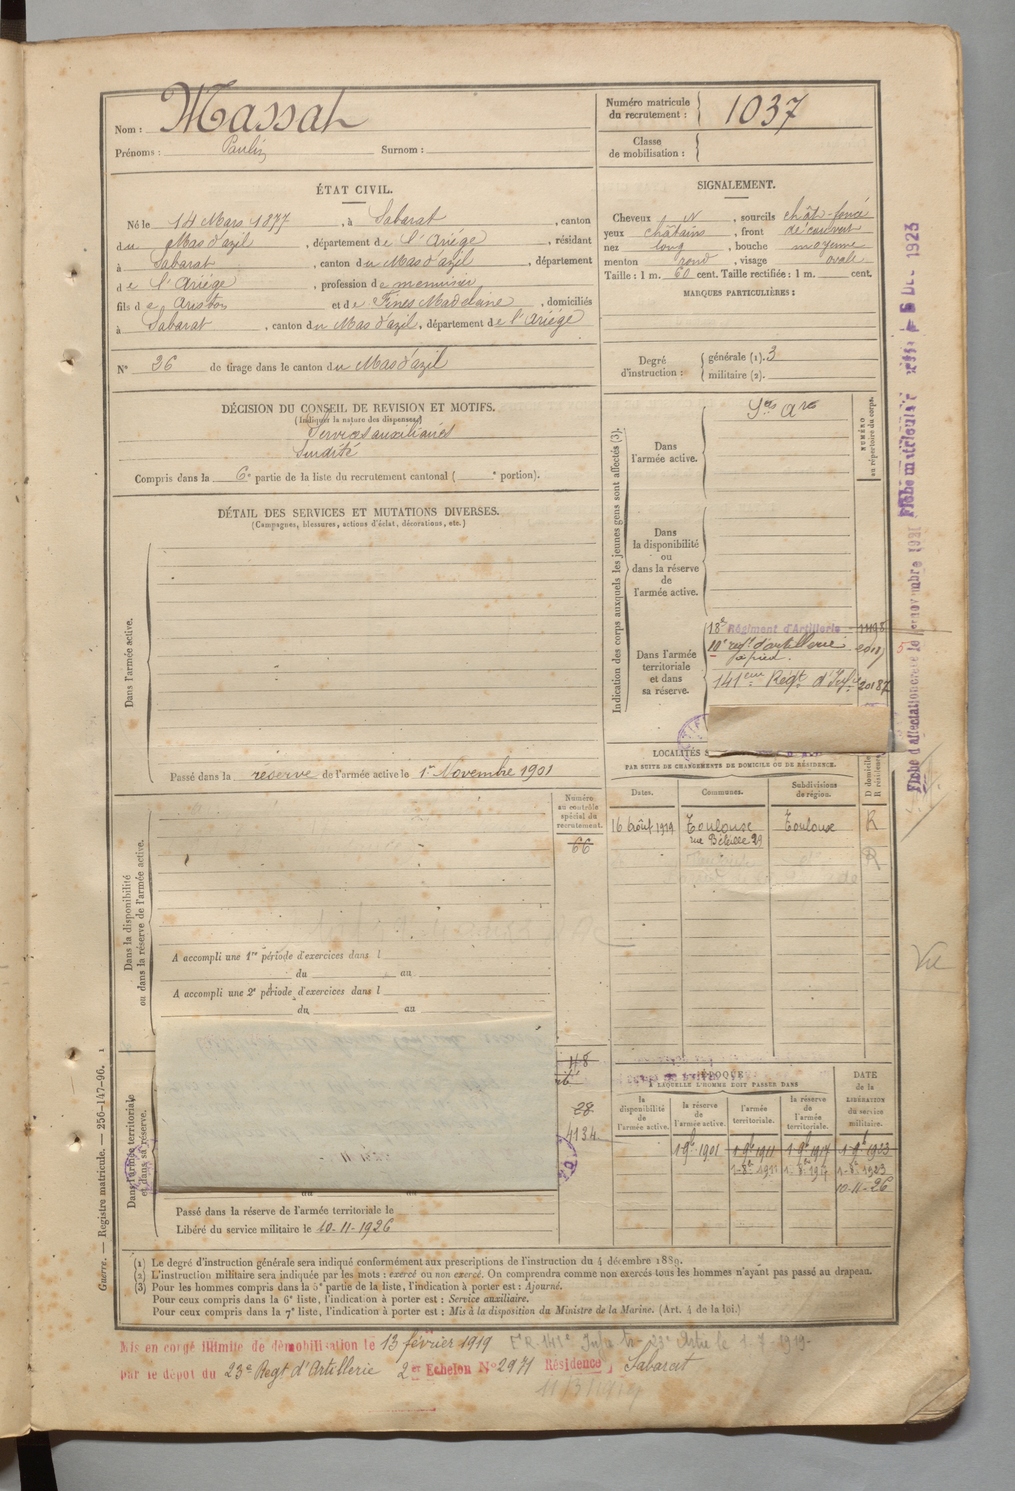 Nom : Massat
Prénoms : Paulin Surnom :
Numéro matricule du recrutement : 1037
Classe de mobilisation :
ÉTAT CIVIL.
Né le 14 Mars 1877, à Sabarat, canton
du Mas d'azil, département de l'Ariége, résidant
à Sabarat, canton du Mas d'azil, département
de l'Ariége, profession de menuisier
fils de Ariston et de Fines Madeleine, domiciliés
à Sabarat, canton du Mas d'azil, département de l'Ariége
N° 26 de tirage dans le canton du Mas d'azil
SIGNALEMENT.
Cheveux N, sourcils chât-foncé
yeux châtains, front découvert
nez long, bouche moyenne
menton rond, visage ovale
Taille : 1 m. 60 cent. Taille rectifiée : 1 m. cent.
MARQUES PARTICULIÈRES :
Degré d'instruction : générale (1). 3
militaire (2).
DÉCISION DU CONSEIL DE REVISION ET MOTIFS.
(Indiquer la nature des dispenses)
Services auxiliaires
Surdité
Compris dans la 6e partie de la liste du recrutement cantonal ( e portion).
DÉTAIL DES SERVICES ET MUTATIONS DIVERSES.
(Campagnes, blessures, actions d'éclat, décorations, etc.)
Dans l'armée active.
Passé dans la réserve de l'armée active le 1er Novembre 1901
Indication des corps auxquels les jeunes gens sont affectés (3).
NUMÉRO au répertoire du corps.
Dans l'armée active.
Dans la disponibilité ou dans la réserve de l'armée active.
Dans l'armée territoriale et dans sa réserve.
18e Régiment d'Artillerie
10e régt d'artillerie
à pied.
141eme Régt d'Infie 20187
LOCALITÉS
PAR SUITE DE CHANGEMENTS DE DOMICILE OU DE RÉSIDENCE.
Dates. Communes. Subdivisions de région. D domicile R résidence
16 Août 1919 Toulouse Toulouse R
rue Béteille 29
R
Dans la disponibilité ou dans la réserve de l'armée active.
Numéro au contrôle spécial du recrutement.
66
A accompli une 1re période d'exercices dans l
du au
A accompli une 2e période d'exercices dans l
du au
Dans l'armée territoriale et dans sa réserve.
28
4134
Passé dans la réserve de l'armée territoriale le
Libéré du service militaire le 10-11-1926
ÉPOQUE
A LAQUELLE L'HOMME DOIT PASSER DANS
la disponibilité de l'armée active. la réserve de l'armée active. l'armée territoriale. la réserve de l'armée territoriale. DATE de la LIBÉRATION du service militaire.
1-9e 1901 1-9e 1911 1-9e 1917 1-9e 1923
1-8e 1911 1-8e 1917 1-8e 1923
10-11-26
(1) Le degré d'instruction générale sera indiqué conformément aux prescriptions de l'instruction du 4 décembre 1889.
(2) L'instruction militaire sera indiquée par les mots : exercé ou non exercé. On comprendra comme non exercés tous les hommes n'ayant pas passé au drapeau.
(3) Pour les hommes compris dans la 5e partie de la liste, l'indication à porter est : Ajourné.
Pour ceux compris dans la 6e liste, l'indication à porter est : Service auxiliaire.
Pour ceux compris dans la 7e liste, l'indication à porter est : Mis à la disposition du Ministre de la Marine. (Art. 4 de la loi.)
Guerre. — Registre matricule. — 256-147-96.
Mis en congé illimité de démobilisation le 13 février 1919
par le dépôt du 23e Régt d'Artillerie 2e Echelon N° 2971 Résidence Sabarat
Vu